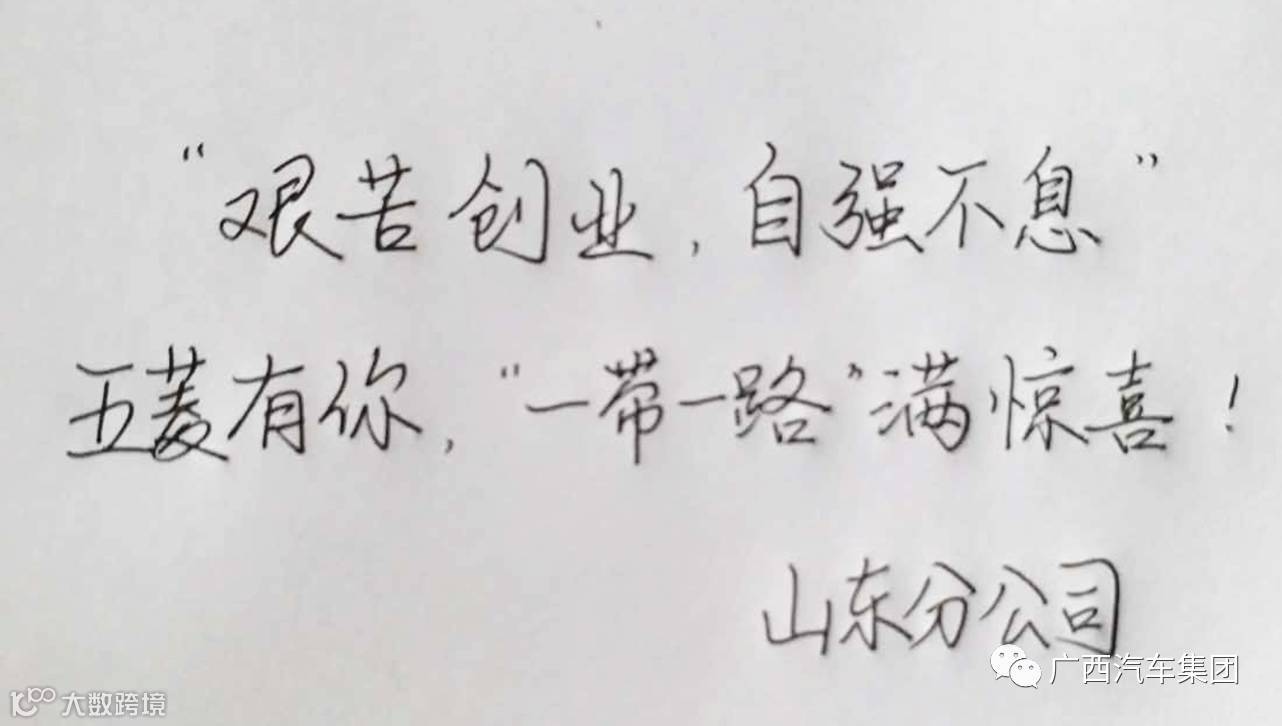 “艰苦创业,自强不息”
五菱有你,“一带一路”满惊喜!
山东分公司
广西汽车集团
大数跨境